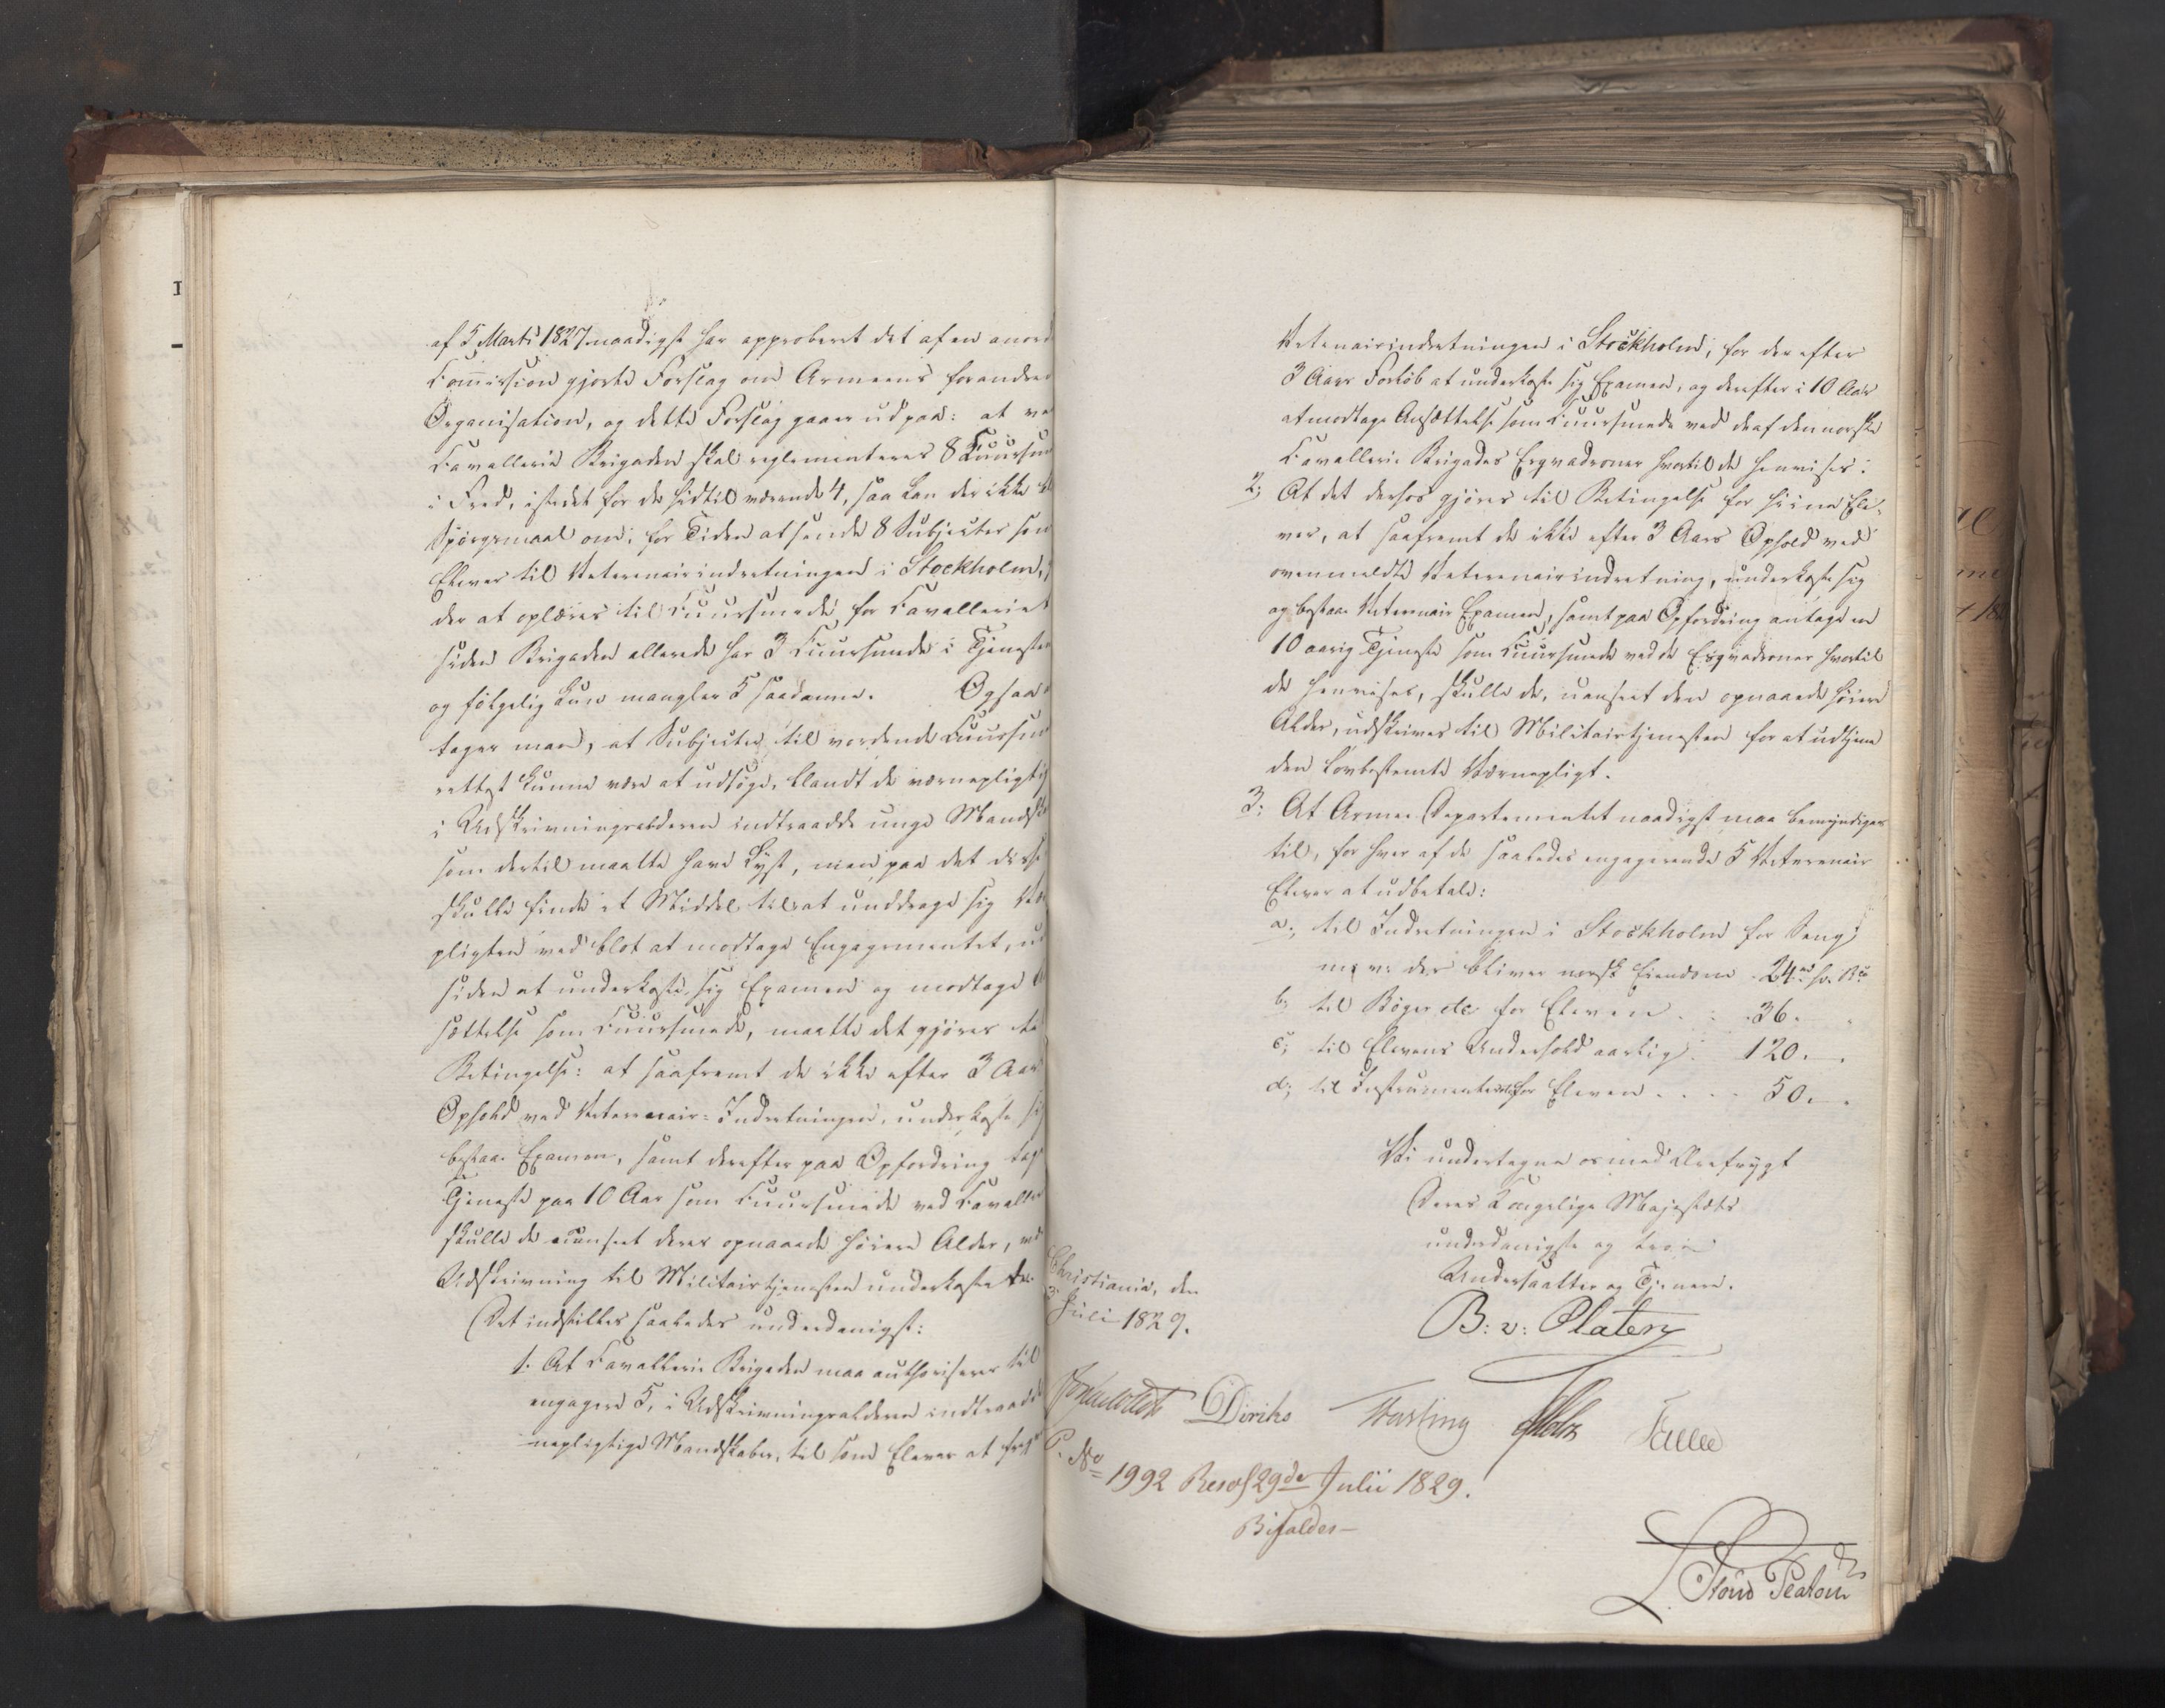 af 5 Marts 1827 naadigst har approberet det af en anord
Commission gjorte Forslag om Armeens forandred
Organisation, og dette Forslag gaaer ud paa: at ve
Cavallerie Brigaden skal reglementeres 8 Cuursm
i Fred, istedet for de hidtil værende 4, saa kan der ikke bl
Spørgsmaal om, for Tiden at sende 8 Subjecter som
Elever til Veterinairindretningen i Stockholm,
der at oplæres til Cuursmede for Cavalleriet
siden Brigaden allerede har 3 Cuursmede i Tjenesten
og følgelig kun mangler 5 saadanne. Ogsaa
tager man, at Subjecter til vordende Cuursm
rettest kunne være at udsøge, blandt de værnepligtig
i Udskrivningsalderen indtraadte unge Mandsk
som dertil maatte have Lyst, men paa det disse
skulle finde et Middel til at unddrage sig Vær
pligten ved blot at modtage Engagementet, ud
siden at underkaste sig Examen og modtage A
sættelse som Cuursmede, maatte det gjøres til
Betingelse: at saafremt de ikke efter 3 Aars
Ophold ved Veterinair-Indretningen, underkaste sig
bestaae Examen, samt derefter paa Opfordring tage
Tjeneste paa 10 Aar som Cuursmede ved Cavalle
skulle de uanseet deres opnaaede høiere Alder, ved
Udskrivning til Militairtjenesten underkastes
Det indstilles saaledes underdanigst:
1. At Cavallerie Brigaden maa authoriseres til
engagere 5, i Udskrivningsalderen indtraadte
nepligtige Mandskaber, til som Elever at
Veterinairindretningen i Stockholm, for der efter
3 Aars Forløb at underkaste sig Examen, og derefter i 10 Aar
at modtage Ansættelse som Cuursmede ved de af den norske
Cavallerie Brigades Esqvadroner hvortil de henvises.
2; At det derhos gjøres til Betingelse for hiine Ele-
ver, at saafremt de ikke efter 3 Aars Ophold ved
ovenmeldte Veterinairindretning, underkaste sig
og bestaae Veterinair Examen, samt paa Opfordring antage en
10 aarig Tjeneste som Cuursmede ved de Esqvadroner hvortil
de henvises, skulle de, uanseet den opnaaede høiere
Alder, udskrives til Militairtjenesten for at udtjene
den lovbestemte Værnepligt.
3: At Armee Departementet naadigst maa bemyndiges
til, for hver af de saaledes engagerende 5 Veterinair
Elever at udbetale:
a; til Indretningen i Stockholm for Seng
m. v: der bliver norsk Eiendom 24 rd sv. Bco
b; til Bøger etc for Eleven . . 36.
c; til Elevens Underhold aarlig 120.
d; til Instrumenter for Eleven . . . . 50.
Vi undertegne os med Ærefrygt
Deres Kongelige Majestæts
underdanigste og troe
Undersaatter og Tjenere.
Christiania, den
Juli 1829.
B: v: Platen
Diriks Fasting Holst
P. No 1992 Resol 29de Julii 1829.
Bifaldes